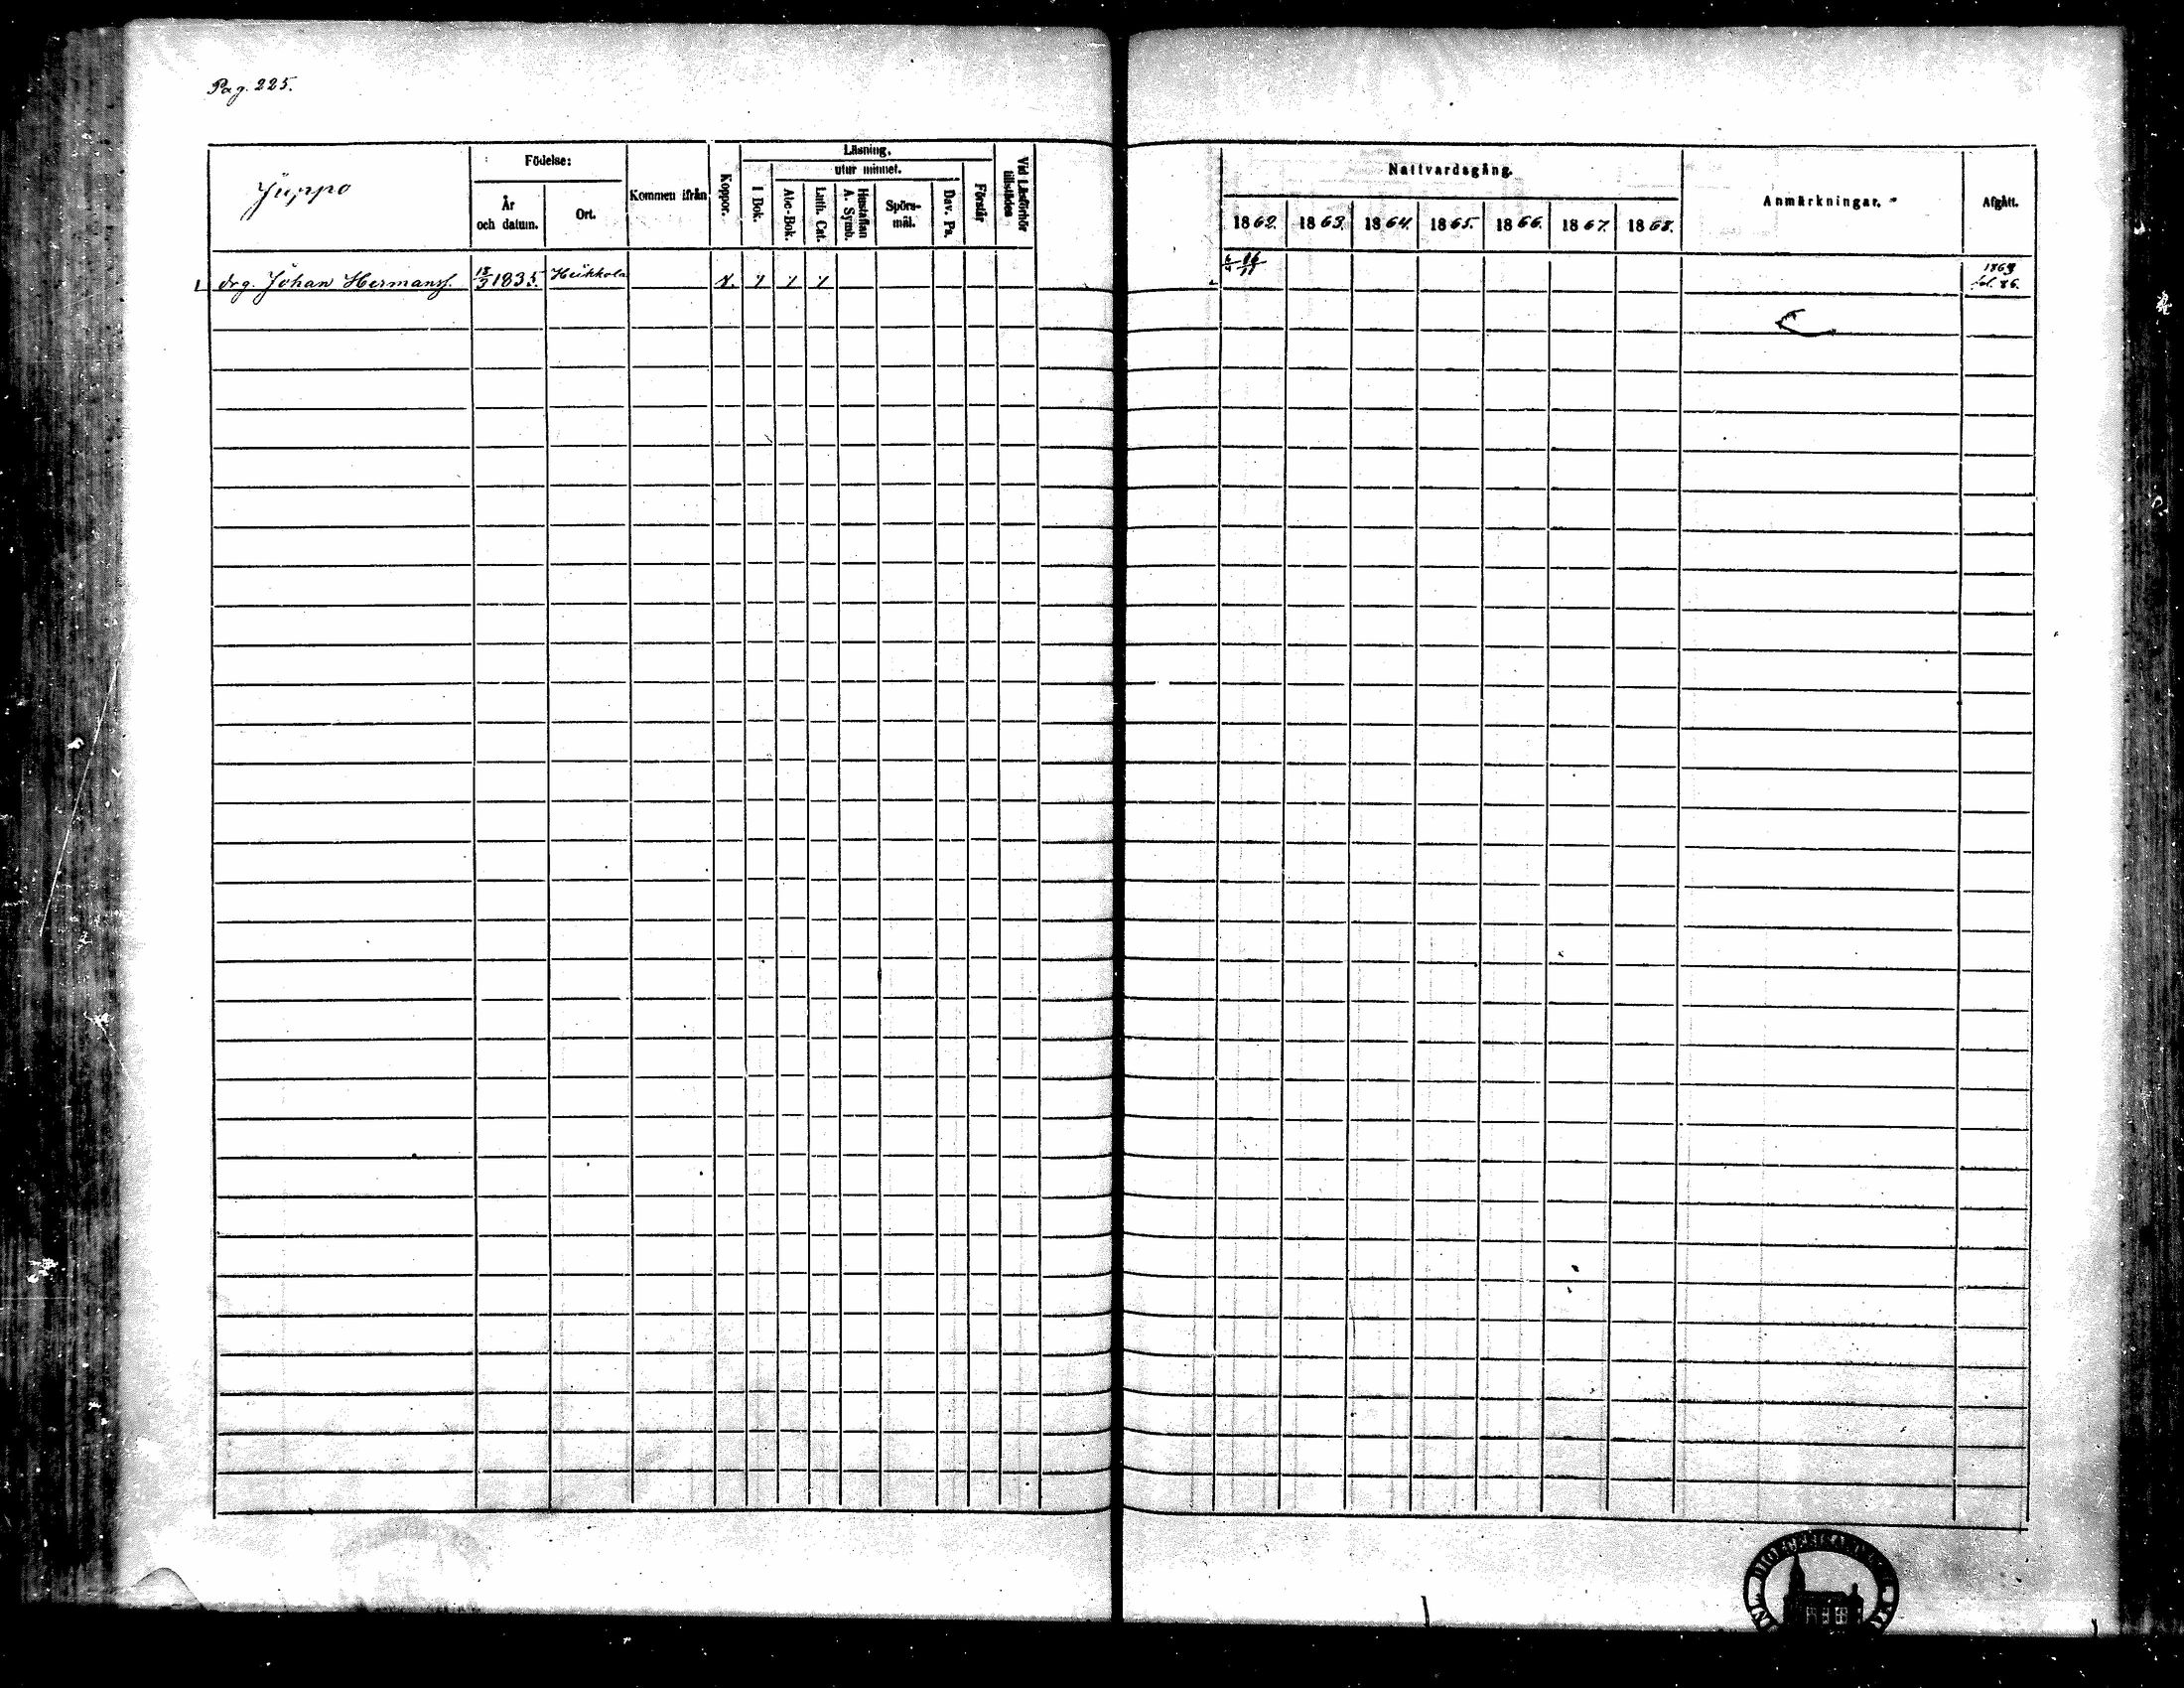 Pag. 225.
Juppo
Födelse:
År och datum.
Ort.
Kommen ifrån
Koppor.
Läsning.
I Bok.
utur minnet.
Abc-Bok.
Luth. Cat.
Hustaflan A. Symb.
Spörs-mål.
Dav. Ps.
Förstår
Vid Läsförhör tillstädes
Nattvardsgång.
1862. 1863. 1864. 1865. 1866. 1867. 1868.
Anmärkningar.
Afgått.
1 drg. Johan Hermans. 18/3 1835. Heikkola
16/11
1869 fol. 86.